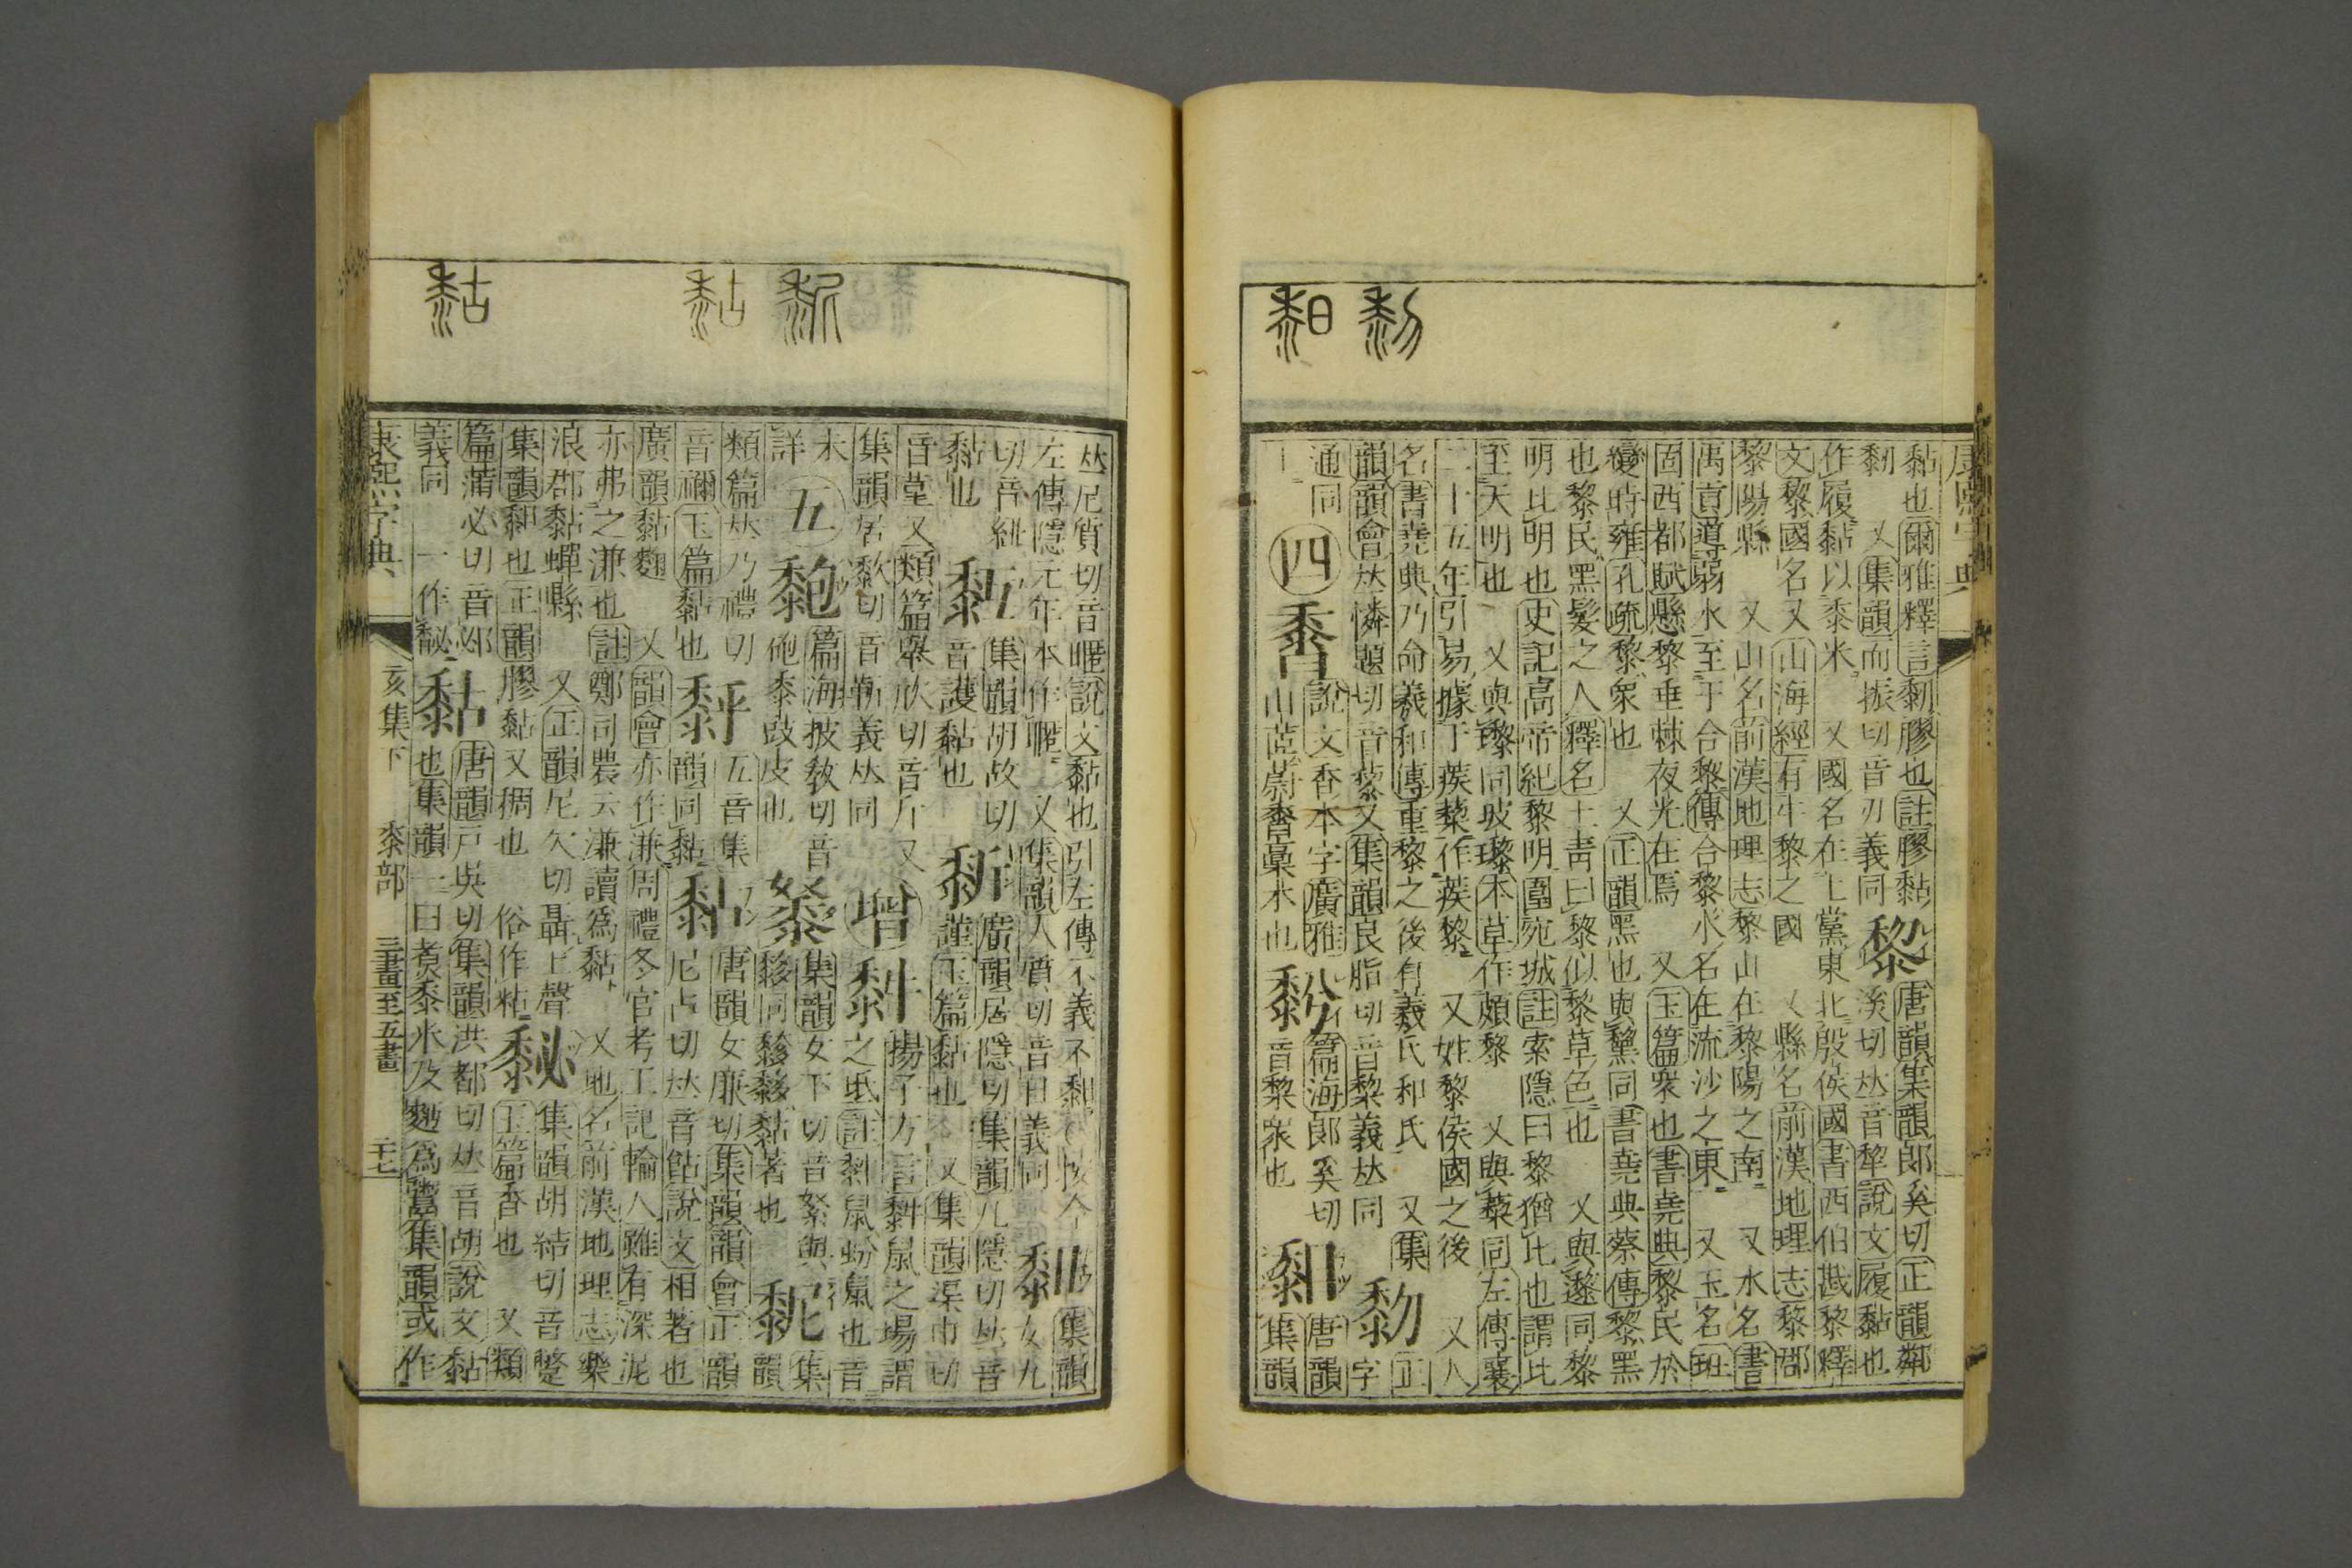 康熙字典
黏也爾雅釋言䵑膠也註膠黏 黎 唐韻集韻郞奚切正韻鄰
䵑 又集韻而振切音刃義同 溪切𠀤音犂說文履黏也
作履黏以黍米 又國名在上黨東北殷侯國書西伯戡黎釋
文黎國名又山海經有牛黎之國 又縣名前漢地理志黎郡
黎陽縣 又山名前漢地理志黎山在黎陽之南 又水名書
禹貢導弱水至于合黎傳合黎水名在流沙之東 又玉名班
固西都賦懸黎垂棘夜光在焉 又玉篇衆也書堯典黎民於
變時雍孔疏黎衆也 又正韻黑也與黧同書堯典蔡傳黎黑
也黎民黑髮之人釋名土靑曰黎似黎草色也 又與邌同黎
明比明也史記高帝紀黎明圍宛城註索隱曰黎猶比也謂比
至天明也 又與瓈同玻瓈本草作頗黎 又與藜同左傳襄
二十五年引易據于蒺藜作蒺黎 又姓黎侯國之後 又人
名書堯典乃命羲和傳重黎之後有羲氏和氏 又集 正
韻韻會𠀤憐題切音藜又集韻良脂切音黎義𠀤同 字
通同 四 說文香本字廣雅 篇海郞奚切 䵒 唐韻
山茝蔚香藁本也 音黎衆也 集韻
𠀤尼質切音暱說文黏也引左傳不義不䵒按今 集韻
左傳隱元年本作暱 又集韻人質切音日義同 女九
切音紐 集韻胡故切 廣韻居隱切集韻几隱切𠀤音
黏也 音護黏也 謹玉篇黏也 又集韻渠巾切
音堇又類篇舉欣切音斤又 增 揚子方言 鼠之場謂
集韻居焮切音靳義𠀤同 之坻註 鼠蚡鼠也音
未 五 篇海披敎切音 集韻女下切音絮與 集
詳 砲黍豉皮也 同 黏著也 韻
類篇𠀤乃禮切 五音集 唐韻女廉切集韻韻會正韻
音禰玉篇黏也 韻同黏 黏 尼占切𠀤音鮎說文相著也
廣韻黏麴 又韻會亦作溓周禮冬官考工記輪人雖有深泥
亦弗之溓也註鄭司農云溓讀爲黏 又地名前漢地理志樂
浪郡黏蟬縣 又正韻尼欠切聶上聲 集韻胡結切音蹩
集韻䵑也正韻膠黏又稠也 俗作粘 玉篇香也 又類
篇蒲必切音邲 黏 唐韻戸吳切集韻洪都切𠀤音胡說文黏
義同 一作䬛 也集韻一曰煑黍米及麪爲鬻集韻或作
康熙字典 亥集下 黍部 三畫至五畫 二十七